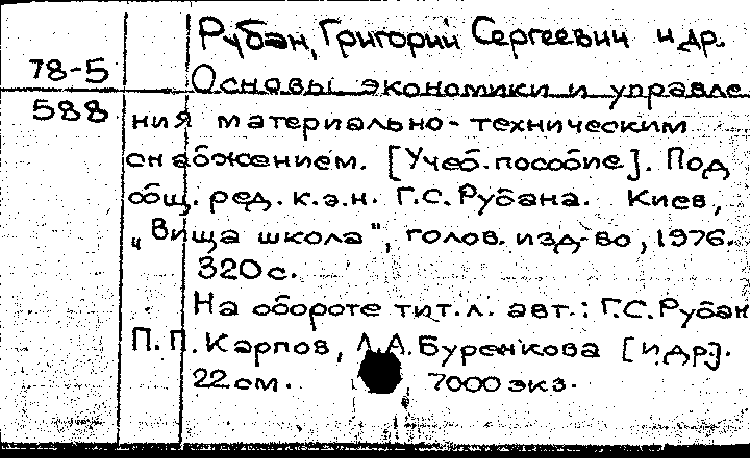 Рубан, Григорий Сергеевич и др.
78-5
Основы экономики и управле
588
ния материально-техническим
снабжением. [Учеб.пособие]. Под
общ. ред. к.э.н. Г.С.Рубана. Киев,
„Вища школа", голов. изд-во, 1976.
320с.
На обороте тит.л. авт.: Г.С.Рубан
П.П.Карпов, Л.А.Буренкова [и др].
22см. 7000 экз.